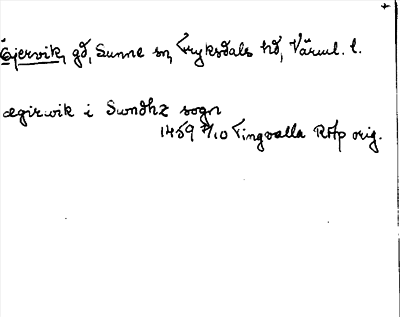 +
Ejervik, gd, Sunne sn, Fryksdals hd, Värml. l.
ægirwik i Swndhz sogn
1459 7/10 Tingvalla RAp orig.